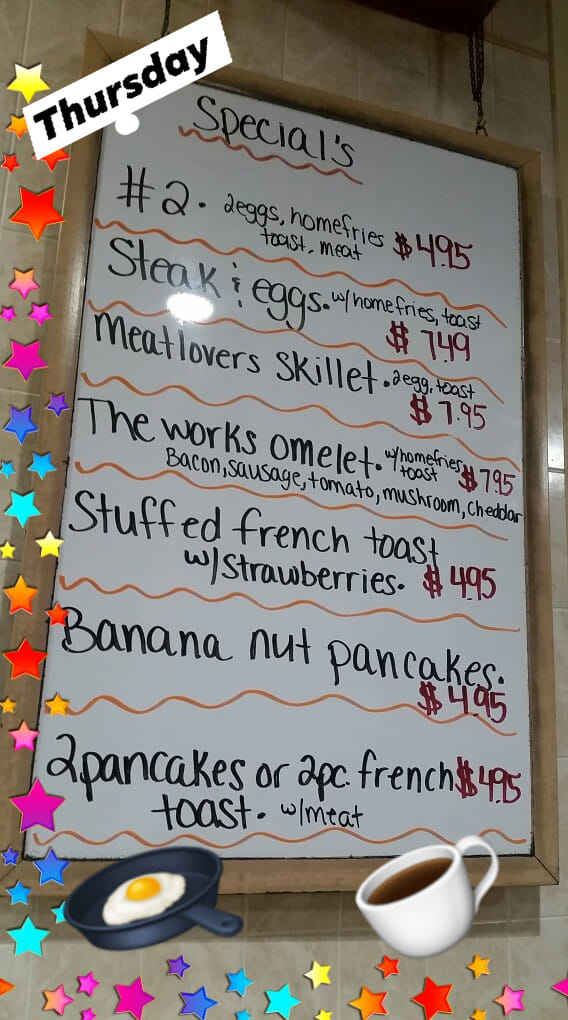 Thursday
Special's
#2. 2eggs, homefries $4.95
toast, meat
Steak & eggs. w/homefries, toast
$7.49
Meatlovers Skillet. 2egg, toast
$7.95
The works omelet. w/homefries $7.95
toast
Bacon, sausage, tomato, mushroom, cheddar
Stuffed french toast
w/strawberries. $4.95
Banana nut pancakes.
$4.95
2pancakes or 2pc. french $4.95
toast. w/meat